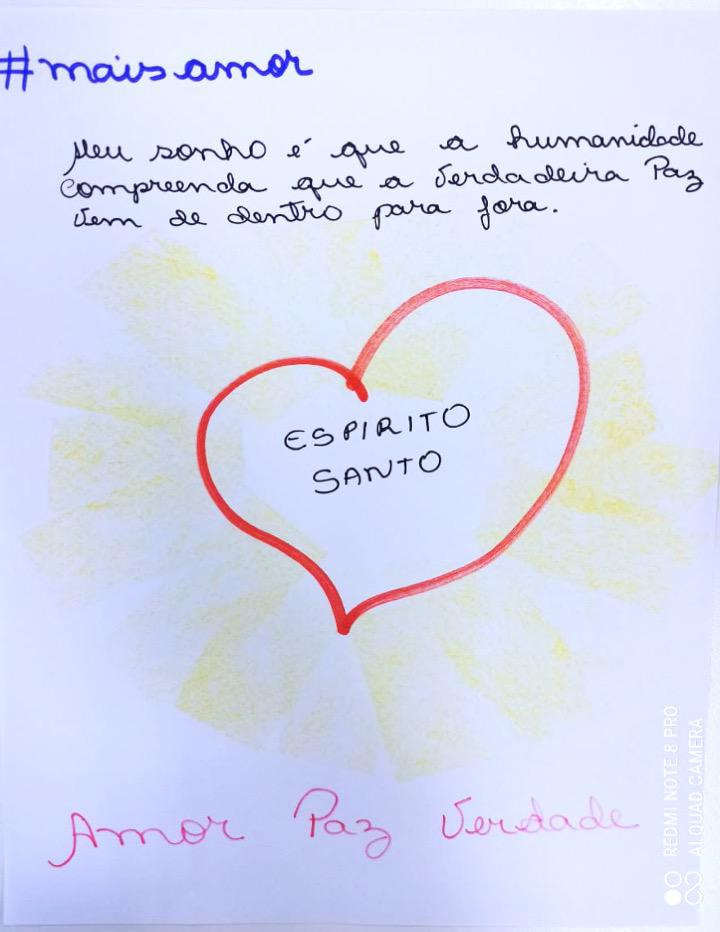 #mais amor
Meu sonho é que a humanidade
compreenda que a verdadeira Paz
vem de dentro para fora.
ESPIRITO
SANTO
Amor Paz Verdade
REDMI NOTE 8 PRO
AI QUAD CAMERA